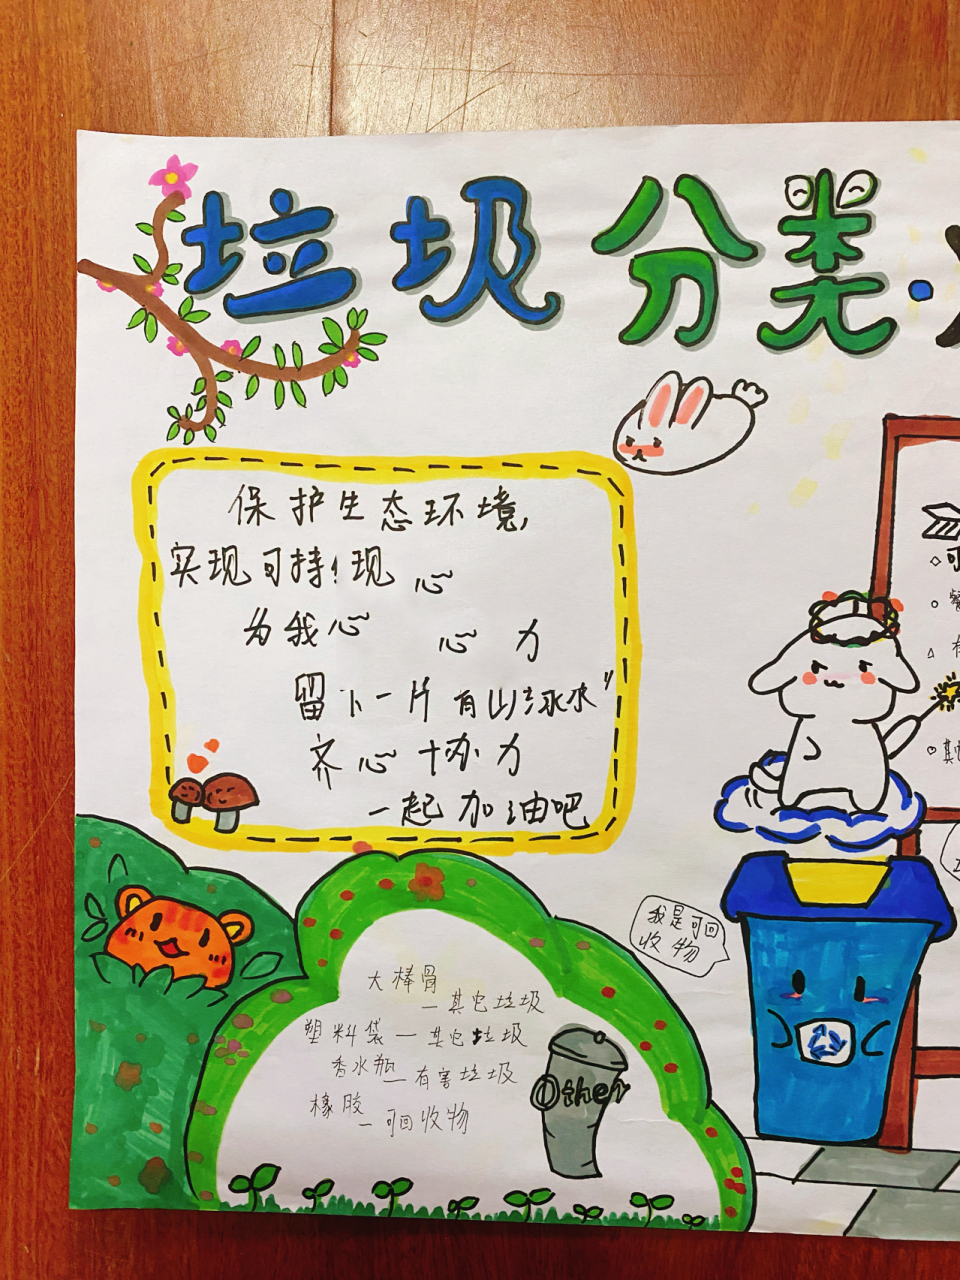 垃圾分类·
保护生态环境,
实现可持！现 心
为我心 心 力
留下一片有山 水"
齐心协力
一起加油吧
我是可回
收物
大棒骨
一其它垃圾
塑料袋一其它垃圾
香水瓶
一有害垃圾
橡胶
一可回收物
Other